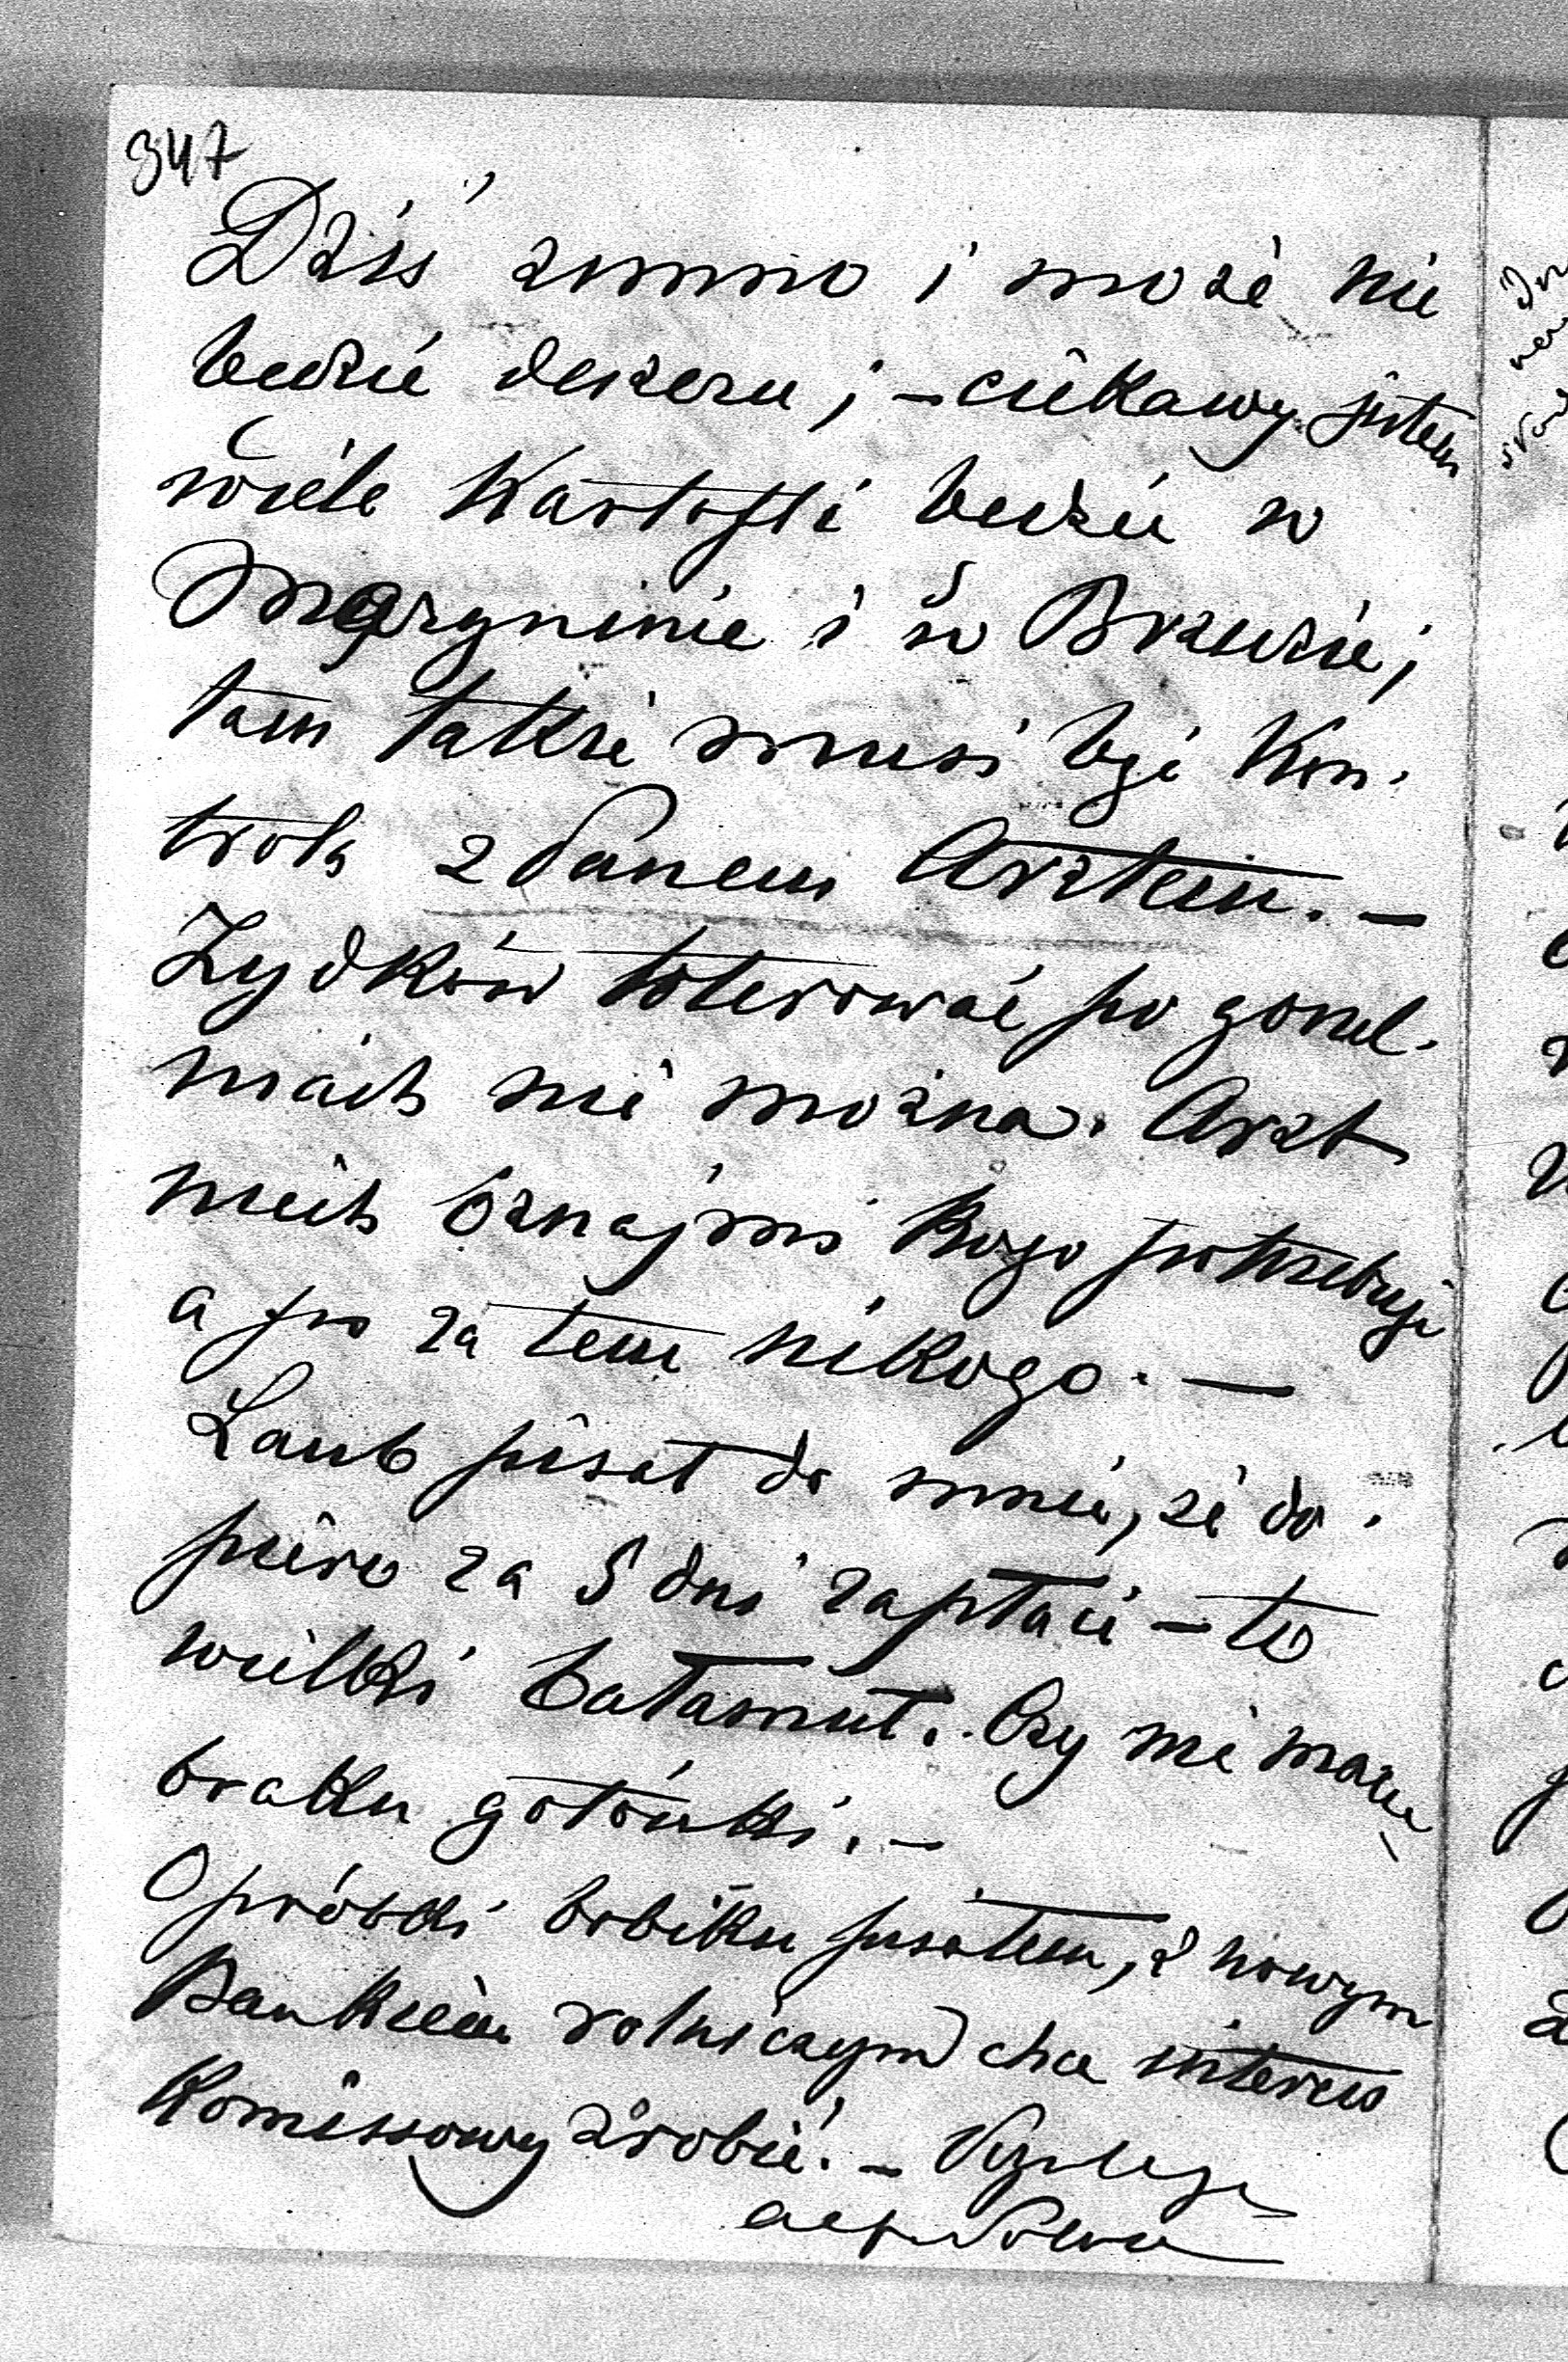 347
Dziś zimno i może nie
będzie deszczu; – ciekawy jestem
wiele Kartofli będzie w
Maryninie i w Brzuzie;
tam także musi być Kon-
trola z Panem Arztem. –
Żydków tolerować po gorzel-
niach nie można. Arzt
niech oznajmi Kogo potrzebuje
a po za tem nikogo. –
Laub pisał do mnie, że do-
piero za 5 dni zapłaci – to
wielki bałamut. Czy nie macie
braku gotówki. –
O próbki bobiku pisałem, z nowym
Bankiem rolniczym chcę interes
Komissowy zrobić. –